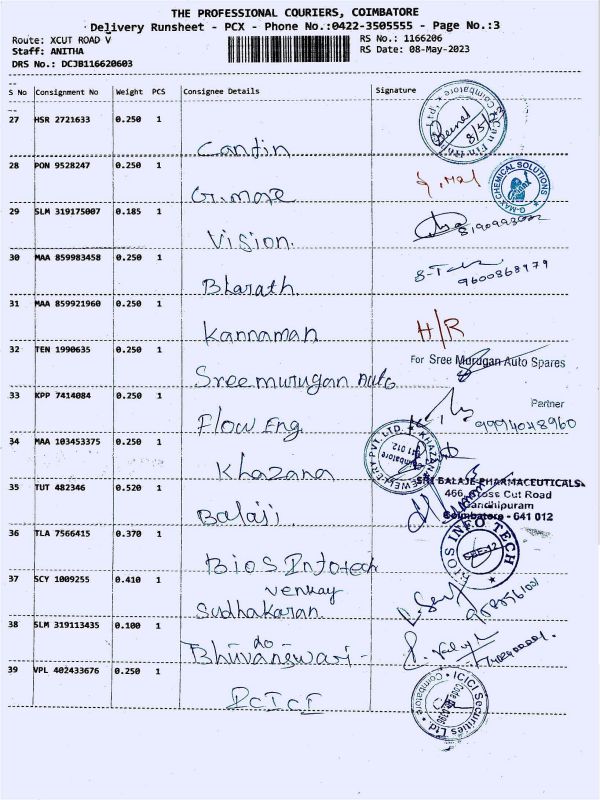 THE PROFESSIONAL COURIERS, COIMBATORE
Delivery Runsheet - PCX - Phone No.:0422-3505555 - Page No.:3
Route: XCUT ROAD V RS No.: 1166206
Staff: ANITHA RS Date: 08-May-2023
DRS No.: DCJB116620603
S No Consignment No Weight PCS Consignee Details Signature
27 HSR 2721633 0.250 1
Cantin
8/5/23
28 PON 9528247 0.250 1
G.more
G-MAX CHEMICAL SOLUTIONS
29 SLM 319175007 0.185 1
Vision.
30 MAA 859983458 0.250 1
Bharath.
9600868979
31 MAA 859921960 0.250 1
Kannaman
H/R
32 TEN 1990635 0.250 1
For Sree Murugan Auto Spares
Sree murugan Auto
33 KPP 7414084 0.250 1
Partner
Flow Eng.
9994048960
34 MAA 103453375 0.250 1
KHAZANA JEWELLERY PVT. LTD.
Coimbatore
641 012
Khazana
35 TUT 482346 0.520 1
SRI BALAJE PHARMACEUTICALS
466, Cross Cut Road
Gandhipuram
Coimbatore - 641 012
Balaji
36 TLA 7566415 0.370 1
BIOS INFO TECH
CBE-12
Bios Infotech
37 SCY 1009255 0.410 1
venkay
Sudhakaran
38 SLM 319113435 0.100 1
do
Bhuvaneswari -
39 VPL 402433676 0.250 1
ICICI Securities Ltd.
Coimbatore
ICICI